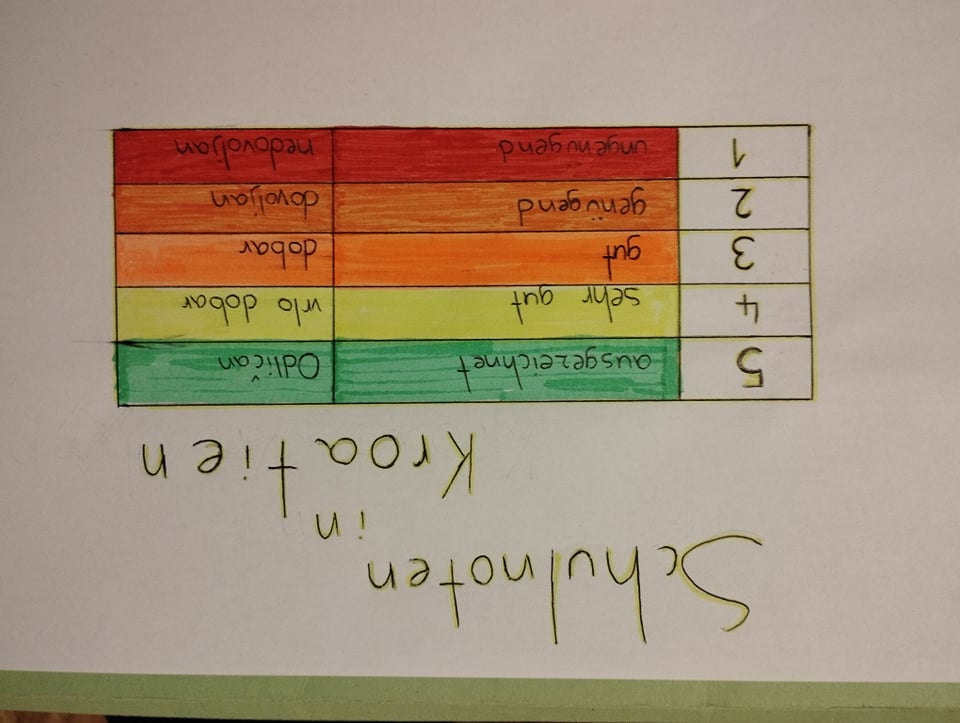 Schulnoten
in
Kroatien
5 ausgezeichnet Odličan
4 sehr gut vrlo dobar
3 gut dobar
2 genügend dovoljan
1 ungenügend nedovoljan